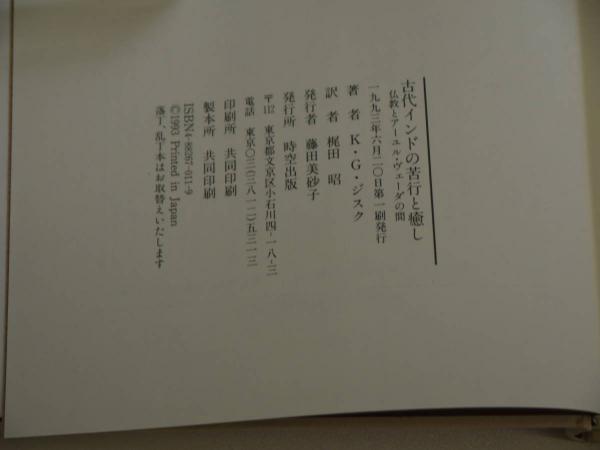 古代インドの苦行と癒し
仏教とアーユル・ヴェーダの間
一九九三年六月二〇日第一刷発行
著者 K・G・ジスク
訳者 梶田 昭
発行者 藤田美砂子
発行所 時空出版
〒112 東京都文京区小石川四-一八-三
電話 東京〇三(三八一二)五三一三
印刷所 共同印刷
製本所 共同印刷
ISBN4-88267-011-9
©1993 Printed in Japan
落丁、乱丁本はお取替えいたします